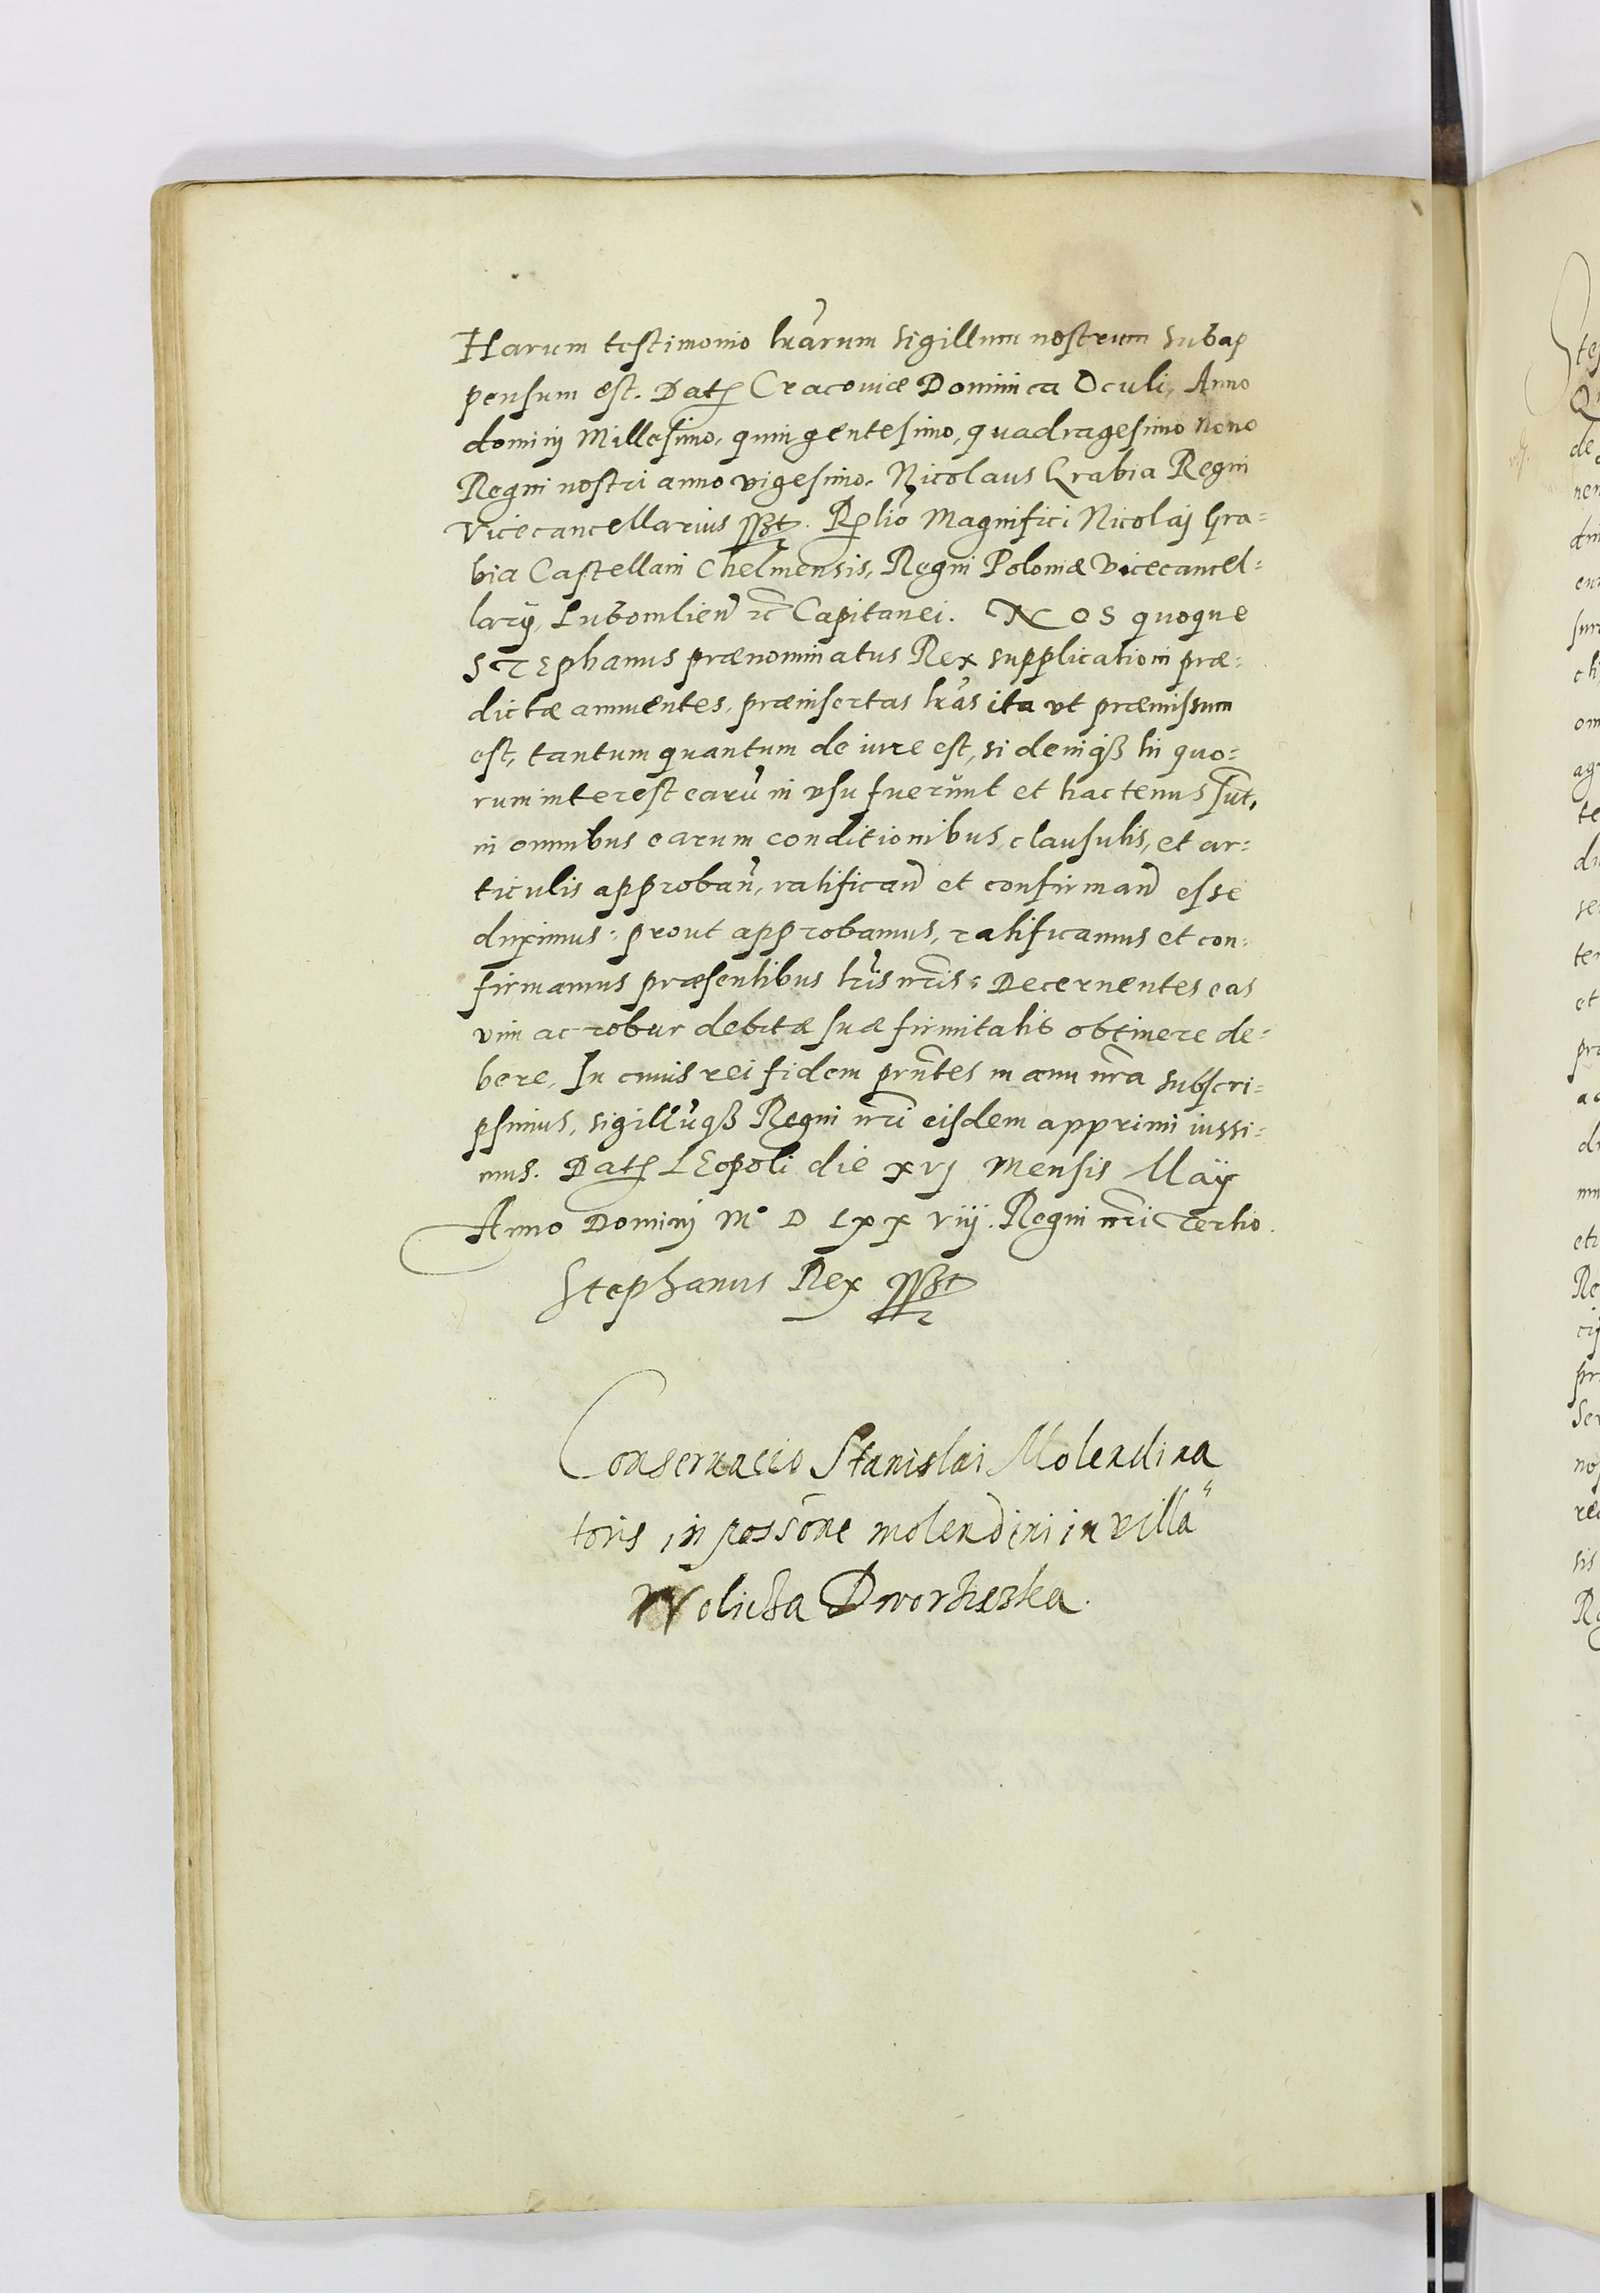 Harum testimonio lrārum sigillum nostrum subap
pensum est. Datę Cracoviæ Dominica Oculi, Anno
dominj Millesimo, quingentesimo, quadragesimo nono
Regni nostri anno vigesimo. Nicolaus Grabia Regni
Vicecancellarius sszt. Rlio Magnifici Nicolaj Gra=
bia Castellani Chelmensis, Regni Poloniæ Vicecancel=
larij, Lubomlien̄ rc Capitanei. NOS quoque
STEphanus prænominatus Rex supplicationi præ=
dictæ annuentes, præinsertas lrās ita vt præmissum
est, tantum quantum de iure est, si deniqß hi quo=
rum interest earū in vsu fuerunt et hactenus sūt,
in omnibus earum conditionibus, clausulis, et ar=
ticulis approban̄, ratifican̄ et confirman̄ esse
duximus: prout approbamus, ratificamus et con=
firmamus præsentibus lrīs nr̄is: Decernentes eas
vim ac robur debitæ suæ firmitatis obtinere de=
bere, In cuius rei fidem prn̄tes manu nr̄a subscri=
psimus, sigillūqß Regni nr̄i eisdem apprimi iussi=
mus. Datę LEopoli die xvj mensis Maÿ
Anno Dominj M° D Lxx viij. Regni nr̄i Tertio.
Stephanus Rex sszt
Conservacio Stanislai Molendina
toris in possōne molendini in villa"
Wolicza Dworhezka.